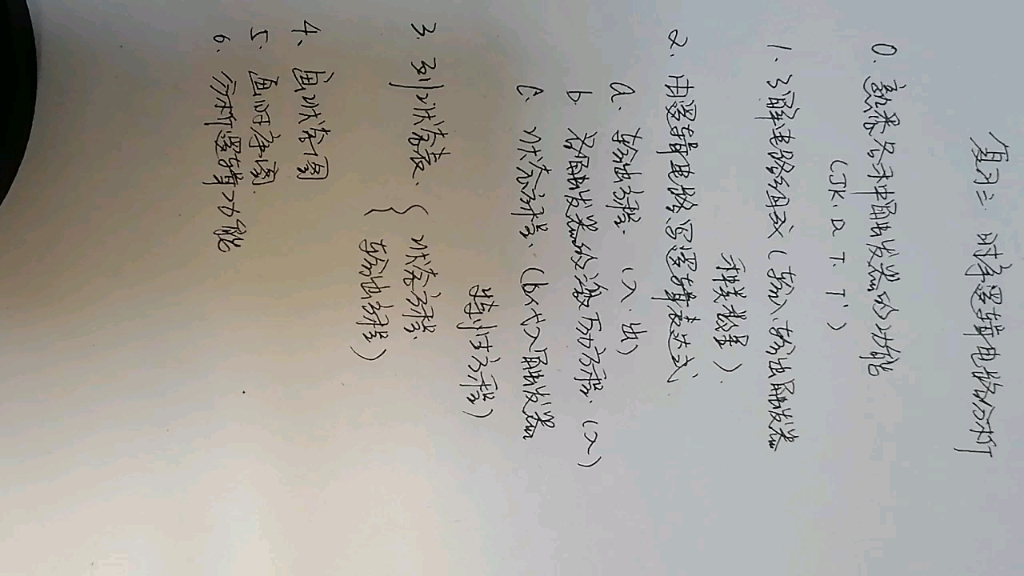 复习三. 时序逻辑电路分析
0. 熟悉各种触发器的功能
(JK. D. T. T')
1. 了解电路组成 (输入、输出触发器
种类数量).
2. 用逻辑电路写逻辑表达式
a. 输出方程. (入. 出)
b. 各触发器的激励方程. (入)
c. 状态方程. (b代入触发器
特性方程)
3. 列状态表. { 状态方程.
输出方程)
4. 画状态图
5. 画时序图
6. 分析逻辑功能